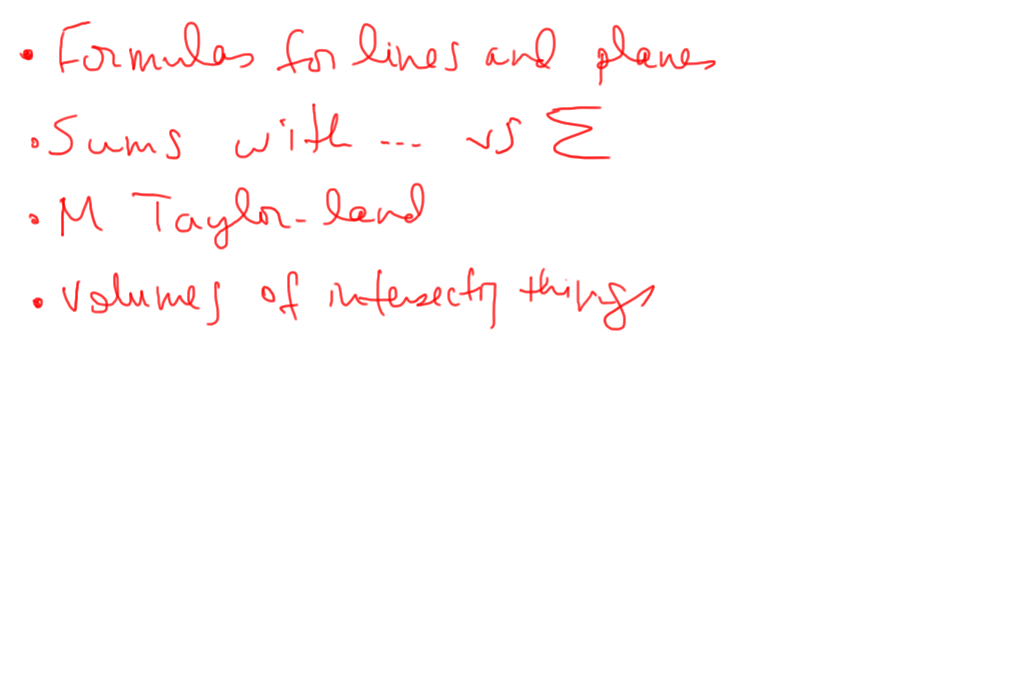 • Formulas for lines and planes
• Sums with ... vs Σ
• M Taylor-land
• Volumes of intersectg things